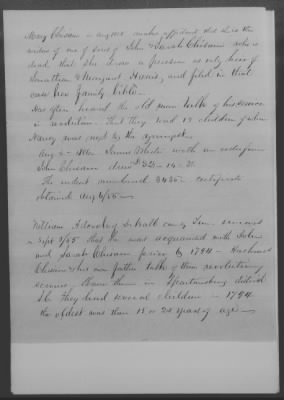 Mary Chisum in aug 1855 makes affidavit that she is the
widow of one of sons of John & Sarah Chisum who is
dead that she is now in possession as only heir of
Jonathan & Margaret Harris, and filed in that
case her family bible.
Has often heard the old man talk of his service
in revolution. that they had 13 children of whom
Nancy was next to the youngest.
Aug 2 - 1860 James
John Chisum drew $ 32 - 14 - 2.
The indent numbered 3435 - certificate
obtained Aug 4/55 -
William Dekalb county Tenn
Sept 3/55 that he was acquainted with John
and Sarah Chisum prior to 1794 - Husband
Chisum & his own father talk of their revolutionary
services knew them in Spartanburg district
S.C. They had several children in 1794
the oldest was then 18 or 20 years of age -